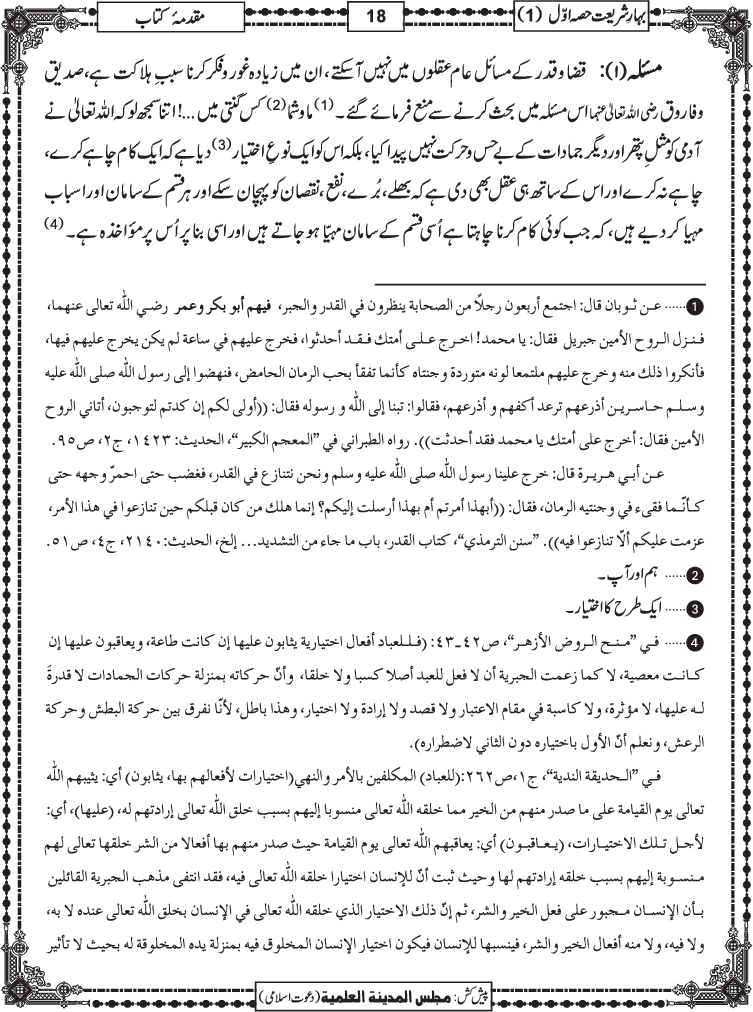 بہارِ شریعت حصہ اوّل (1)
18
مقدمۂ کتاب
مسئلہ (۱): قضا و قدر کے مسائل عام عقلوں میں نہیں آ سکتے، ان میں زیادہ غور و فکر کرنا سببِ ہلاکت ہے، صدیق
و فاروق رضی اللہ تعالیٰ عنہما اس مسئلہ میں بحث کرنے سے منع فرمائے گئے۔ (1) ما و شما (2) کس گنتی میں ...! اتنا سمجھ لو کہ اللہ تعالیٰ نے
آدمی کو مثلِ پتھر اور دیگر جمادات کے بے حس و حرکت نہیں پیدا کیا، بلکہ اس کو ایک نوعِ اختیار (3) دیا ہے کہ ایک کام چاہے کرے،
چاہے نہ کرے اور اس کے ساتھ ہی عقل بھی دی ہے کہ بھلے، بُرے، نفع، نقصان کو پہچان سکے اور ہر قسم کے سامان اور اسباب
مہیا کر دیے ہیں، کہ جب کوئی کام کرنا چاہتا ہے اُسی قسم کے سامان مہیّا ہو جاتے ہیں اور اسی بنا پر اُس پر مؤاخذہ ہے۔ (4)
1 ...... عـن ثـوبان قال: اجتمع أربعون رجلًا من الصحابة ينظرون في القدر والجبر، فيهم أبو بكر وعمر رضي الله تعالى عنهما،
فـنـزل الـروح الأمين جبريل فقال: يا محمد! اخـرج عـلـى أمتك فـقـد أحدثوا، فخرج عليهم في ساعة لم يكن يخرج عليهم فيها،
فأنكروا ذلك منه وخرج عليهم ملتمعا لونه متوردة وجنتاه كأنما تفقأ بحب الرمان الحامض، فنهضوا إلى رسول الله صلى الله عليه
وسـلـم حـاسـريـن أذرعهم ترعد أكفهم و أذرعهم، فقالوا: تبنا إلى الله و رسوله فقال: ((أولى لكم إن كدتم لتوجبون، أتاني الروح
الأمين فقال: أخرج على أمتك يا محمد فقد أحدثت)). رواه الطبراني في ”المعجم الكبير“، الحديث: ١٤٢٣، ج٢، ص٩٥.
عـن أبـي هـريـرة قال: خرج علينا رسول الله صلى الله عليه وسلم ونحن نتنازع في القدر، فغضب حتى احمرّ وجهه حتى
كـأنّـمـا فقىء في وجنتيه الرمان، فقال: ((أبهذا أمرتم أم بهذا أرسلت إليكم؟ إنما هلك من كان قبلكم حين تنازعوا في هذا الأمر،
عزمت عليكم ألاّ تنازعوا فيه)). ”سنن الترمذي“، كتاب القدر، باب ما جاء من التشديد... إلخ، الحديث: ٢١٤٠، ج٤، ص٥١.
2 ...... ہم اور آپ۔
3 ...... ایک طرح کا اختیار۔
4 ...... فـي ”مـنـح الـروض الأزهـر“، ص٤٢ـ٤٣: (فـلـلعباد أفعال اختيارية يثابون عليها إن كانت طاعة، ويعاقبون عليها إن
كـانـت معصية، لا كما زعمت الجبرية أن لا فعل للعبد أصلا كسبا ولا خلقا، وأنّ حركاته بمنزلة حركات الجمادات لا قدرةَ
لـه عليها، لا مؤثرة، ولا كاسبة في مقام الاعتبار ولا قصد ولا إرادة ولا اختيار، وهذا باطل، لأنّا نفرق بين حركة البطش وحركة
الرعش، ونعلم أنّ الأول باختياره دون الثاني لاضطراره).
فـي ”الـحديقة الندية“، ج١، ص٢٦٢: (للعباد) المكلفين بالأمر والنهي (اختيارات لأفعالهم بها، يثابون) أي: يثيبهم الله
تعالى يوم القيامة على ما صدر منهم من الخير مما خلقه الله تعالى منسوبا إليهم بسبب خلق الله تعالى إرادتهم له، (عليها)، أي:
لأجـل تـلـك الاختيـارات، (يـعـاقبـون) أي: يعاقبهم الله تعالى يوم القيامة حيث صدر منهم بها أفعالا من الشر خلقها تعالى لهم
مـنـسـوبة إليهم بسبب خلقه إرادتهم لها وحيث ثبت أنّ للإنسان اختيارا خلقه الله تعالى فيه، فقد انتفى مذهب الجبرية القائلين
بـأن الإنـسـان مـجبور على فعل الخير والشر، ثم إنّ ذلك الاختيار الذي خلقه الله تعالى في الإنسان بخلق الله تعالى عنده لا به،
ولا فيه، ولا منه أفعال الخير والشر، فينسبها للإنسان فيكون اختيار الإنسان المخلوق فيه بمنزلة يده المخلوقة له بحيث لا تأثير
پیش کش: مجلس المدينة العلمية (دعوت اسلامی)